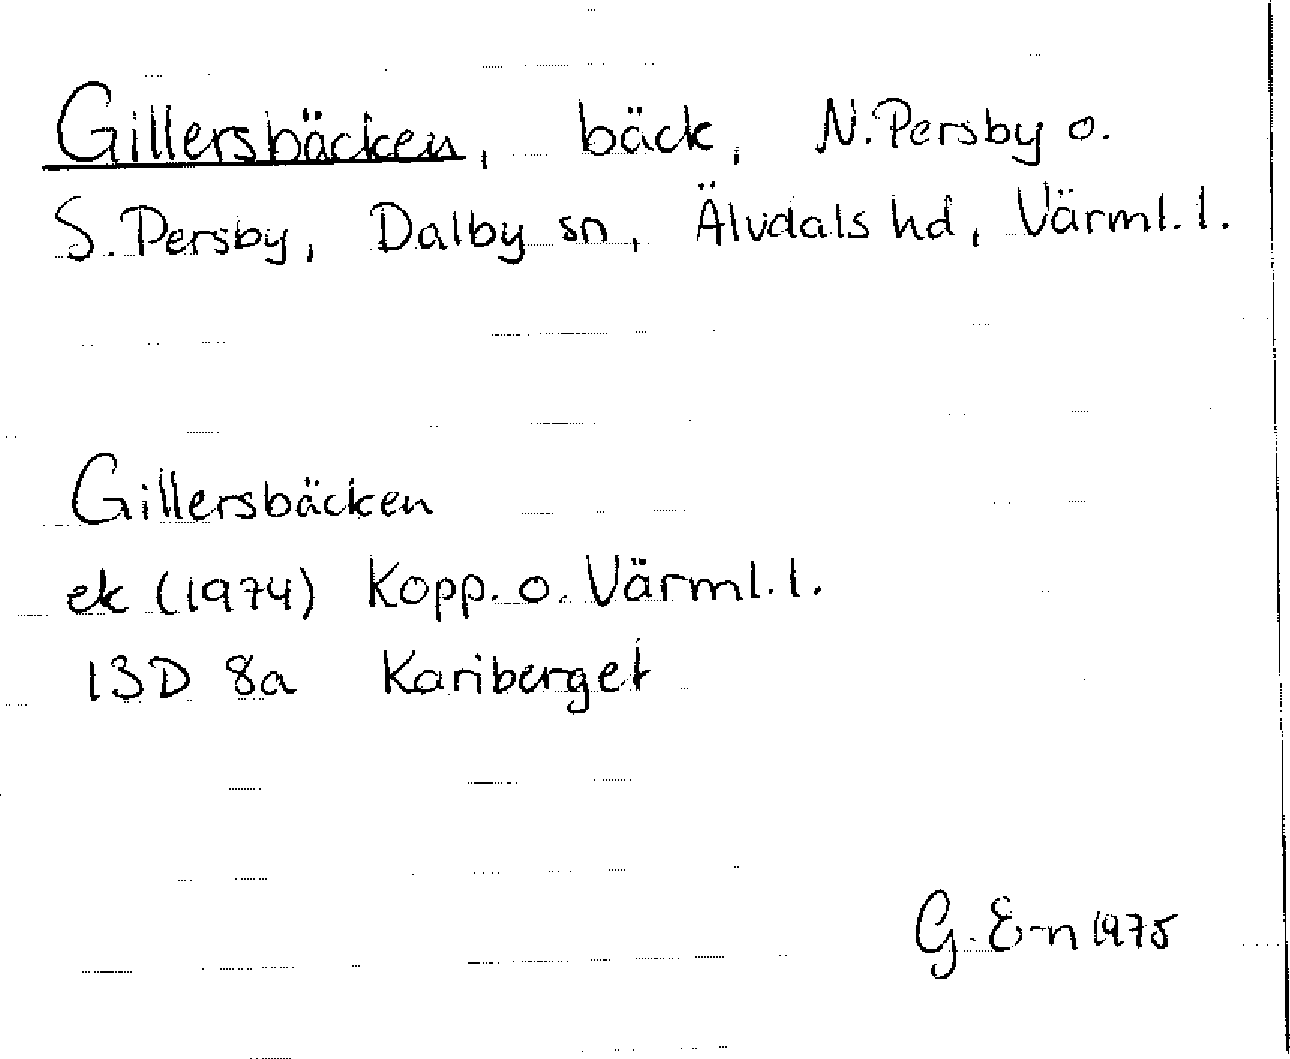 Gillersbäcken, bäck, N. Persby o.
S. Persby, Dalby sn, Älvdals hd, Värml. l.
Gillersbäcken
ek (1974) Kopp. o. Värml. l.
13D 8a Kariberget
G. E-n 1975